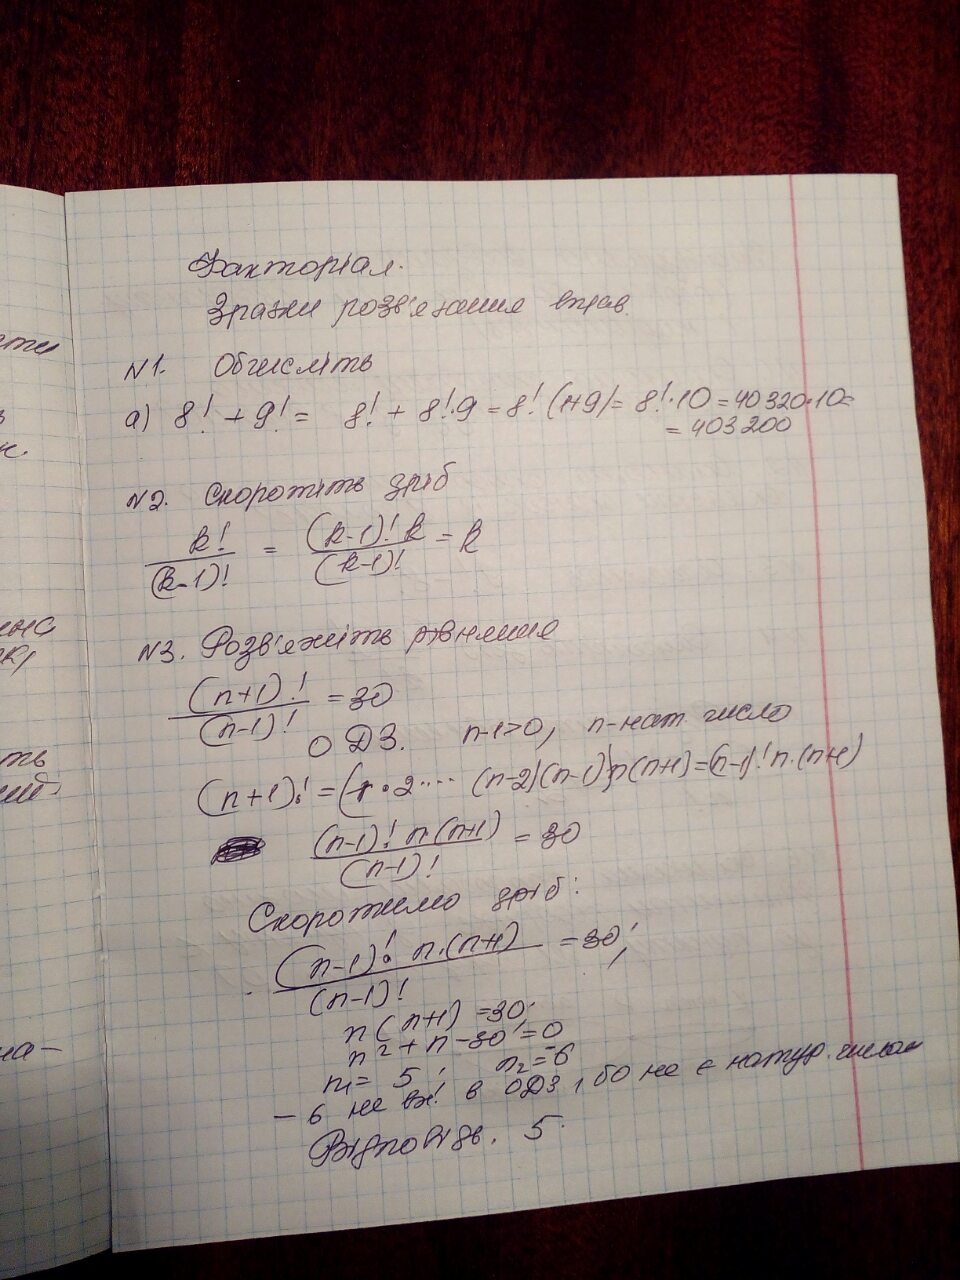 Факторіал.
Зразки розв'язання вправ.
N1. Обчисліть
а) 8! + 9! = 8! + 8!·9 = 8! (1+9) = 8!·10 = 40320·10=
= 403200
N2. Скоротить дріб
k!/(k-1)! = (k-1)! k/(k-1)! = k
N3. Розв'яжіть рівняння
(n+1)!/(n-1)! = 30
ОДЗ. n-1>0, n-нат. число
(n+1)! = (1·2···· (n-2)(n-1))n(n+1)=(n-1)! n·(n+1)
(n-1)! n(n+1)/(n-1)! = 30
Скоротимо дріб:
(n-1)! n·(n+1)/(n-1)! = 30;
n(n+1) = 30;
n²+n-30=0
n₁= 5; n₂=-6
-6 не вх. в ОДЗ, бо не є натур. числом
Відповідь. 5.
сти
в
н.
ть
на-